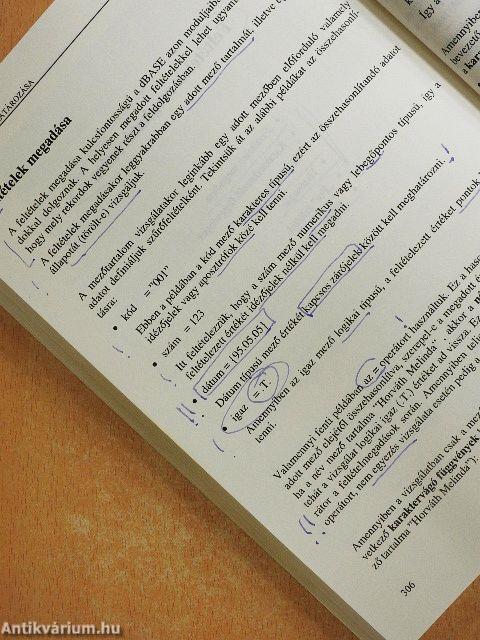 ATÁROZÁSA
ltételek megadása
A feltételek megadása kulcsfontosságú a dBASE azon moduljaiban
dokkal dolgoznak. A helyesen megadott feltételekkel lehet ugyan
hogy mely rekordok vegyenek részt a feldolgozásban.
A feltételek megadásakor leggyakrabban egy adott mező tartalmát, illetve
állapotát (törölt-e) vizsgáljuk.
A mezőtartalom vizsgálatakor leginkább egy adott mezőben előforduló valamely
adatot definiáljuk szűrőfeltételként. Tekintsük át az alábbi példákat az összehasonlí-
tásra:
• kód = "001"
Ebben a példában a kód mező karakteres típusú, ezért az összehasonlítandó adatot
idézőjelek vagy aposztrófok közé kell tenni.
• szám = 123
Itt feltételezzük, hogy a szám mező numerikus vagy lebegőpontos típusú, így a
feltételezett értéket idézőjelek nélkül kell megadni.
• dátum = {95.05.05}
Dátum típusú mező értékét kapcsos zárójelek között kell meghatározni.
• igaz = .T.
Amennyiben az igaz mező logikai típusú, a feltételezett értéket pontok
tenni.
Valamennyi fenti példában az = operátort használtuk. Ez a
adott mező elejétől összehasonlítva, szerepel-e a megadott
ha a név mező tartalma "Horváth Melinda", akkor a
tehát a vizsgálat logikai igaz (.T.) értéket ad vissza.
rátor a feltételmegadások során. Amennyiben
operátort, nem egyezés vizsgálata esetén pedig a
Amennyiben a vizsgálatban csak a
vetkező karaktervágó függvények
ző tartalma "Horváth Melinda"),
306
Így a
bevezető
a kara
Amennyiben
Antikvárium.hu